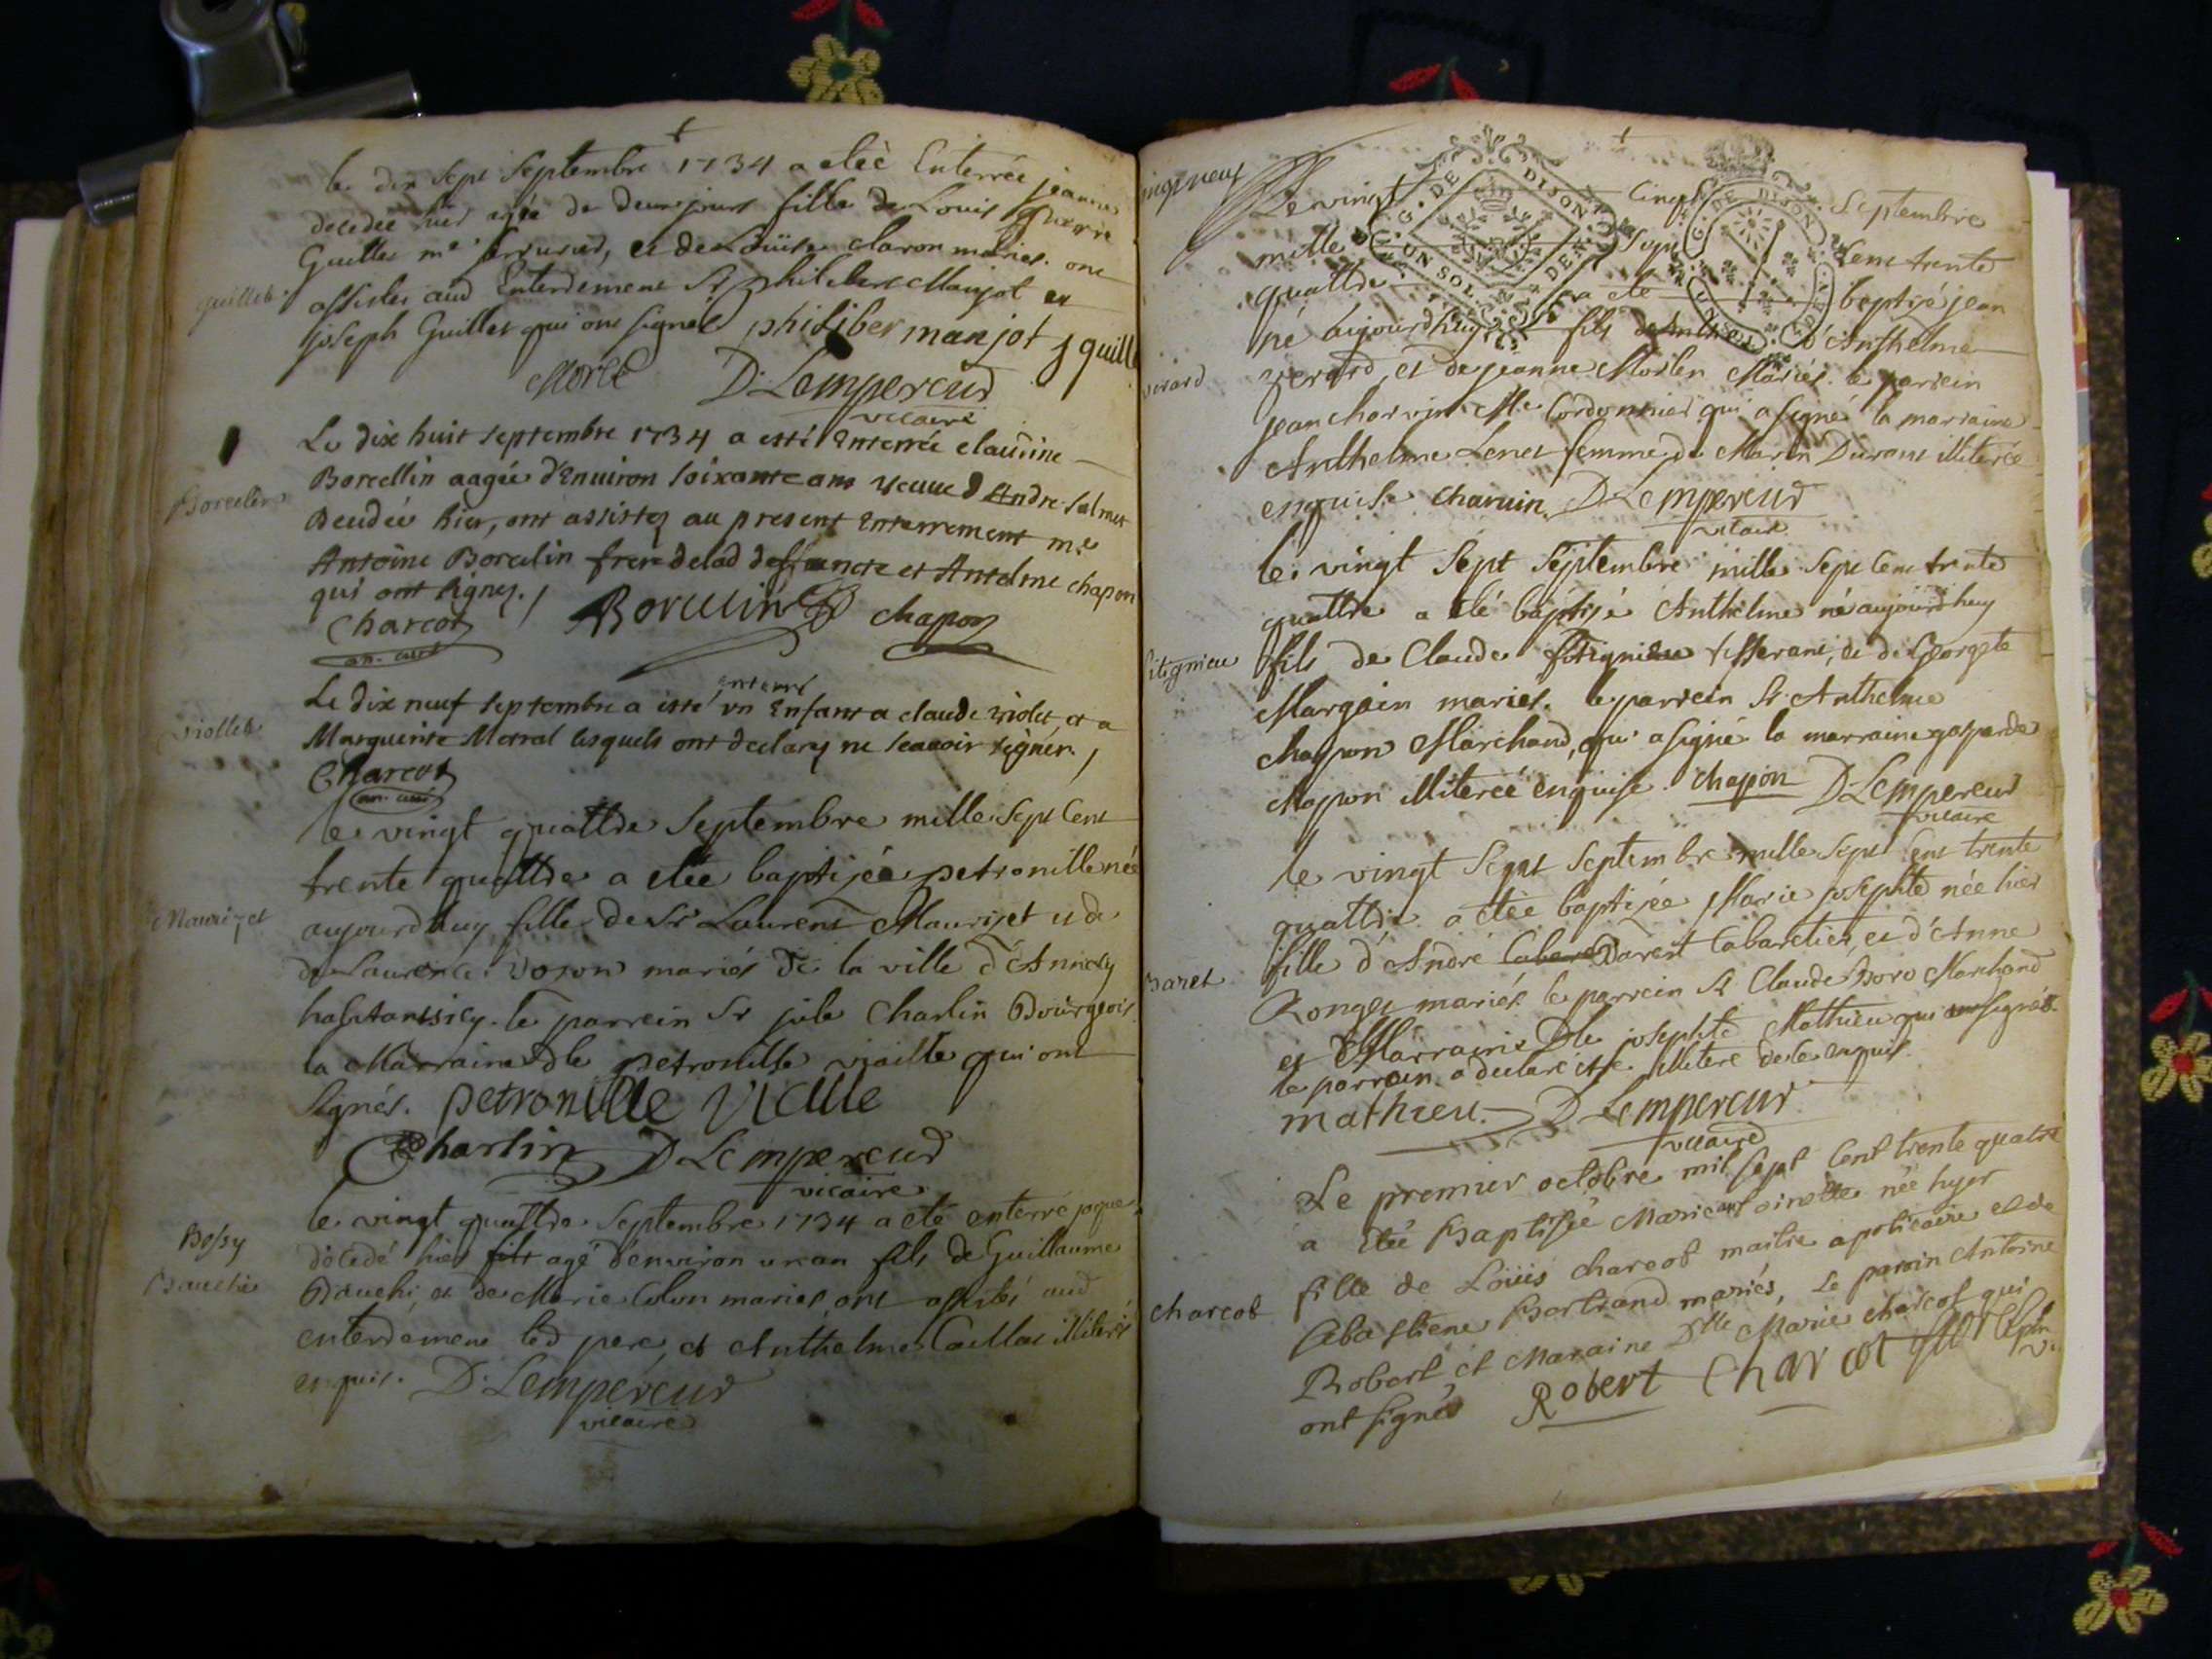 le dix sept Septembre 1734 a eteè Enterrée jeanne
decedée hier agée de deux jours fille de Louis
Guillet me serrurier, et de Loüise claron mariés. ont
guillet
assistes aud Enterrement Sr philibert Manjot et
joseph Guillet qui ont signés philiber manjot j guill
Morel D. Lempereur
vicaire
Le dix huit septembre 1734 a esté Enterrée claudine
Borcelin
Borcellin aagée d'Enuiron soixante ans veuue d Andre
decedée hier, ont assistez au present Enterrement me
Antoine Borcelin frere de lad deffuncte et Antelme chapon
qui ont signez.
Charcot Borcelin chapon
an. curé
enterré
Le dix neuf septembre a esté un Enfant a claude violet et a
violleta
Marguerite Morral lesquels ont declarez ne scauoir signer.
Charcot
an. curé
le vingt quattre Septembre mille sept Cent
trente quattre a etée baptisée petronille née
Maurizet
aujourdhuy fille de Sr Laurent Maurizet et de
de Laurence mariés de la ville d'Annecy
habitants icy. le parrein Sr jule Charlin Bourgeois
la Marraine dle petronille vialle qui ont
signés. petronille vialle
Charlin D Lempereur
vicaire
le vingt quattre Septembre 1734 a eté enterré
Bossy
décedé hier fils agé d'environ un an fils de Guillaume
Bauchi
Bauchi et de Marie Colon mariés ont assisté aud
enterrement led pere, et Anthelme Caillat illiteres
enquis. D. Lempereur
vicaire
Le vingt Cinq Septembre
G. DE DIJON
G. DE DIJON
mille Sept Cent trente
quattre a eté baptisé jean
né aujourdhuy fils d'Anthelme
verard
verard, et de jeanne Morlen Mariés. le parrein
jean charvin Me Cordonnier qui a signé la marraine
Anthelme Lenet femme de Marin Durant illiterée
enquise charuin. D Lempereur
vicaire
le vingt Sept Septembre mille sept Cent trente
quattre a eté baptisé Anthelme né aujourdhuy
fils de Claude tisserant, et de Georgete
Margain mariés. le parrein Sr Anthelme
chapon Marchand, qui a signé la marraine gasparde
chapon illiterée enquise. chapon D Lempereur
vicaire
le vingt Sept Septembre mille sept Cent trente
quattre a etée baptisée Marie josephte née hier
Baret
fille d'André Cabare Baret Cabaretier, et d'Anne
Ronget mariés. le parrein Sr Claude Boro Marchand
et Marraine Dlle josephte Mathieu qui a signé
le parrein a declaré etre illitere de ce enquis.
mathieu. D Lempereur
vicaire
Le premier octobre mil sept Cent trente quatre
a Etée Baptisée Marie antoinette née hyer
fille de Loüis charcot maitre apoticaire et de
Charcot
Sebastiene Bertrand mariés, Le parrin Antoine
Robert et Maraine Dlle Marie charcot qui
ont signés Robert Charcot Morel
v.